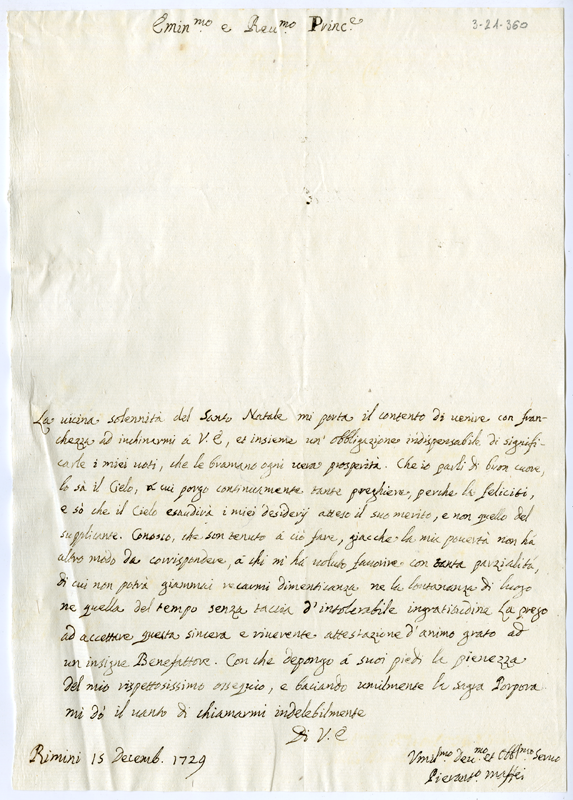 Emin.mo e Reu.mo Princ.e
3-21-360
La uicina solennità del Santo Natale mi porta il contento di uenire con fran-
chezza ad inchinarmi à V. E., et insieme un' obbligazione indispensabile di signifi-
carle i miei uoti, che le bramano ogni uera prosperità. Che io parli di buon cuore,
lo sà il Cielo, a cui porgo continuamente tante preghiere, perche la feliciti,
e sò che il Cielo esaudirà i miei desiderij atteso il suo merito, e non quello del
supplicante. Conosco, che son tenuto à ciò fare, giacche la mia pouertà non há
altro modo da corrispondere, a chi mi há uoluto fauorire con tanta parzialità,
di cui non potrà giammai recarmi dimenticanza ne la lontananza di luogo
ne quella del tempo senza taccia d'intolerabile ingratitudine. La prego
ad accettare questa sincera e riuerente attestazione d'animo grato ad
un insigne Benefattore. Con che depongo à suoi piedi la pienezza
del mio rispettosissimo ossequio, e baciando umilmente la Sagra Porpora
mi dò il uanto di chiamarmi indelebilmente
Di V. E
Rimini 15 Decemb. 1729
Vmil.mo Deu.mo et Obbl.mo Seruo
Pierant.o Maffei